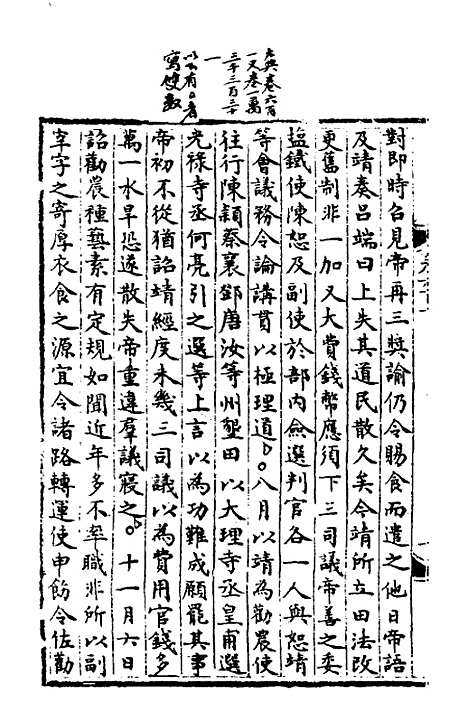 大典卷六百
一又卷一萬
三千三百三十
一
以下有□者
寫使数
對即時召見帝再三奬諭仍令賜食而遣之他日帝語
及靖奏吕端曰上失其道民散久矣今靖所立田法改
更舊制非一加又大費錢幣應須下三司議帝善之委
塩鐵使陳恕及副使於部内僉選判官各一人與恕靖
等會議務令論講貫以極理道。八月以靖為勸農使
往行陳頴蔡襄鄧唐汝等州墾田以大理寺丞皇甫選
光禄寺丞何亮引之選等上言以為功難成願罷其事
帝初不從猶詔靖經度未幾三司議以為費用官錢多
萬一水旱恐遂散失帝重違羣議寢之。十一月六日
詔勸農種藝素有定規如聞近年多不率職非所以副
宰字之寄厚衣食之源宜令諸路轉運使申飭令佐勸